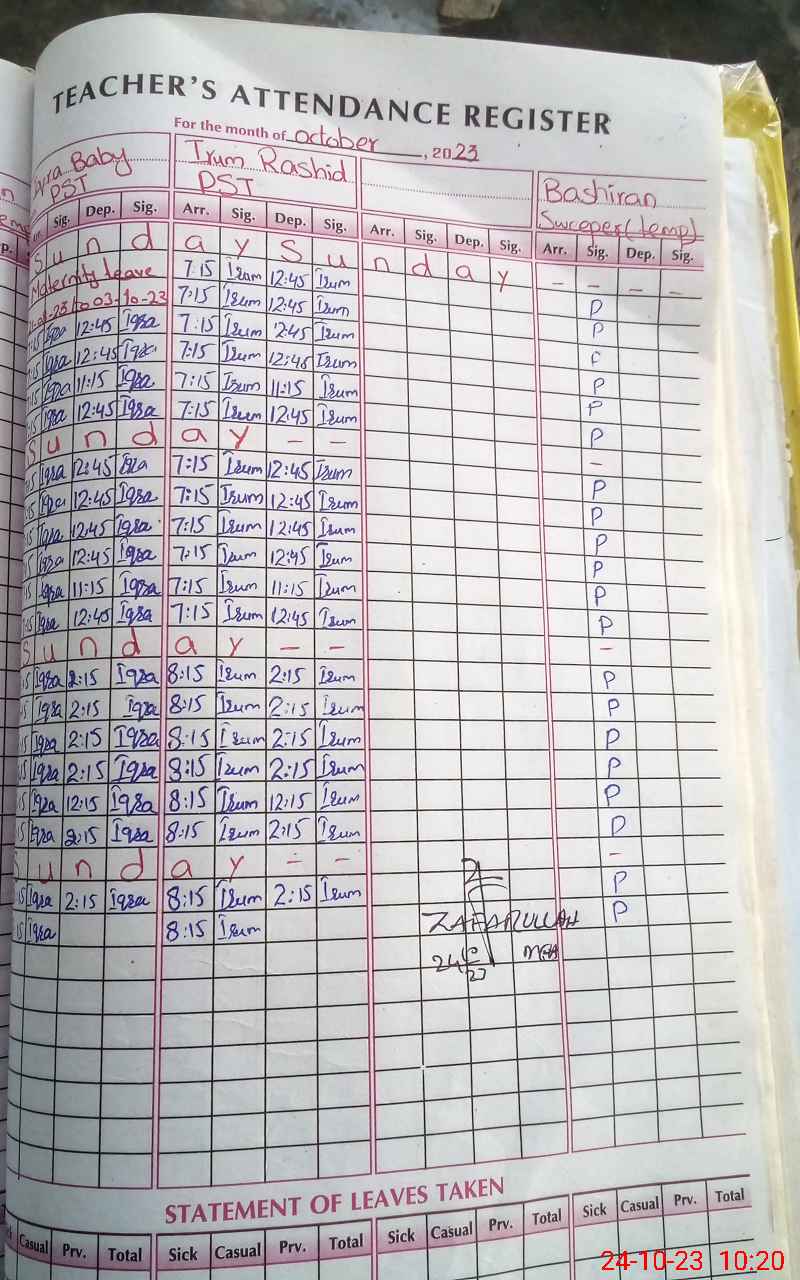 TEACHER'S ATTENDANCE REGISTER
For the month of October, 2023
Baby Irum Rashid Bashiran
PST PST Sweeper (temp)
Sig. Dep. Sig. Arr. Sig. Dep. Sig. Arr. Sig. Dep. Sig. Arr. Sig. Dep. Sig.
S u n d a y S u n d a y - - - -
Maternity Leave 7:15 Irum 12:45 Irum P
to 03-10-23 7:15 Irum 12:45 Irum P
Iqra 12:45 Iqra 7:15 Irum 2:45 Irum P
Iqra 12:45 Iqra 7:15 Irum 12:45 Irum P
Iqra 11:15 Iqra 7:15 Irum 11:15 Irum P
Iqra 12:45 Iqra 7:15 Irum 12:45 Irum P
S u n d a y - - -
Iqra 12:45 Iqra 7:15 Irum 12:45 Irum P
Iqra 12:45 Iqra 7:15 Irum 12:45 Irum P
Iqra 12:45 Iqra 7:15 Irum 12:45 Irum P
Iqra 12:45 Iqra 7:15 Irum 12:45 Irum P
Iqra 11:15 Iqra 7:15 Irum 11:15 Irum P
Iqra 12:45 Iqra 7:15 Irum 12:45 Irum P
S u n d a y - - -
Iqra 2:15 Iqra 8:15 Irum 2:15 Irum P
Iqra 2:15 Iqra 8:15 Irum 2:15 Irum P
Iqra 2:15 Iqra 8:15 Irum 2:15 Irum P
Iqra 2:15 Iqra 8:15 Irum 2:15 Irum P
Iqra 12:15 Iqra 8:15 Irum 12:15 Irum P
Iqra 2:15 Iqra 8:15 Irum 2:15 Irum P
S u n d a y - - -
Iqra 2:15 Iqra 8:15 Irum 2:15 Irum P
Iqra 8:15 Irum P
ZAFARULLAH
MEA
STATEMENT OF LEAVES TAKEN
Casual Prv. Total Sick Casual Prv. Total Sick Casual Prv. Total Sick Casual Prv. Total
24-10-23 10:20